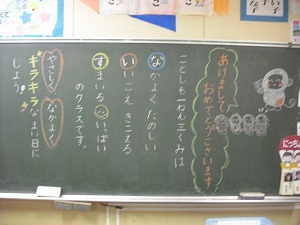 あけまして
おめでとうございます
ことしも一ねん三くみは
なかよく たのしい
いいこえ きこえる
すまいる いっぱい
のクラスです。
やさしく なかよく
キラキラなまい日に
しよう!
にっちょく